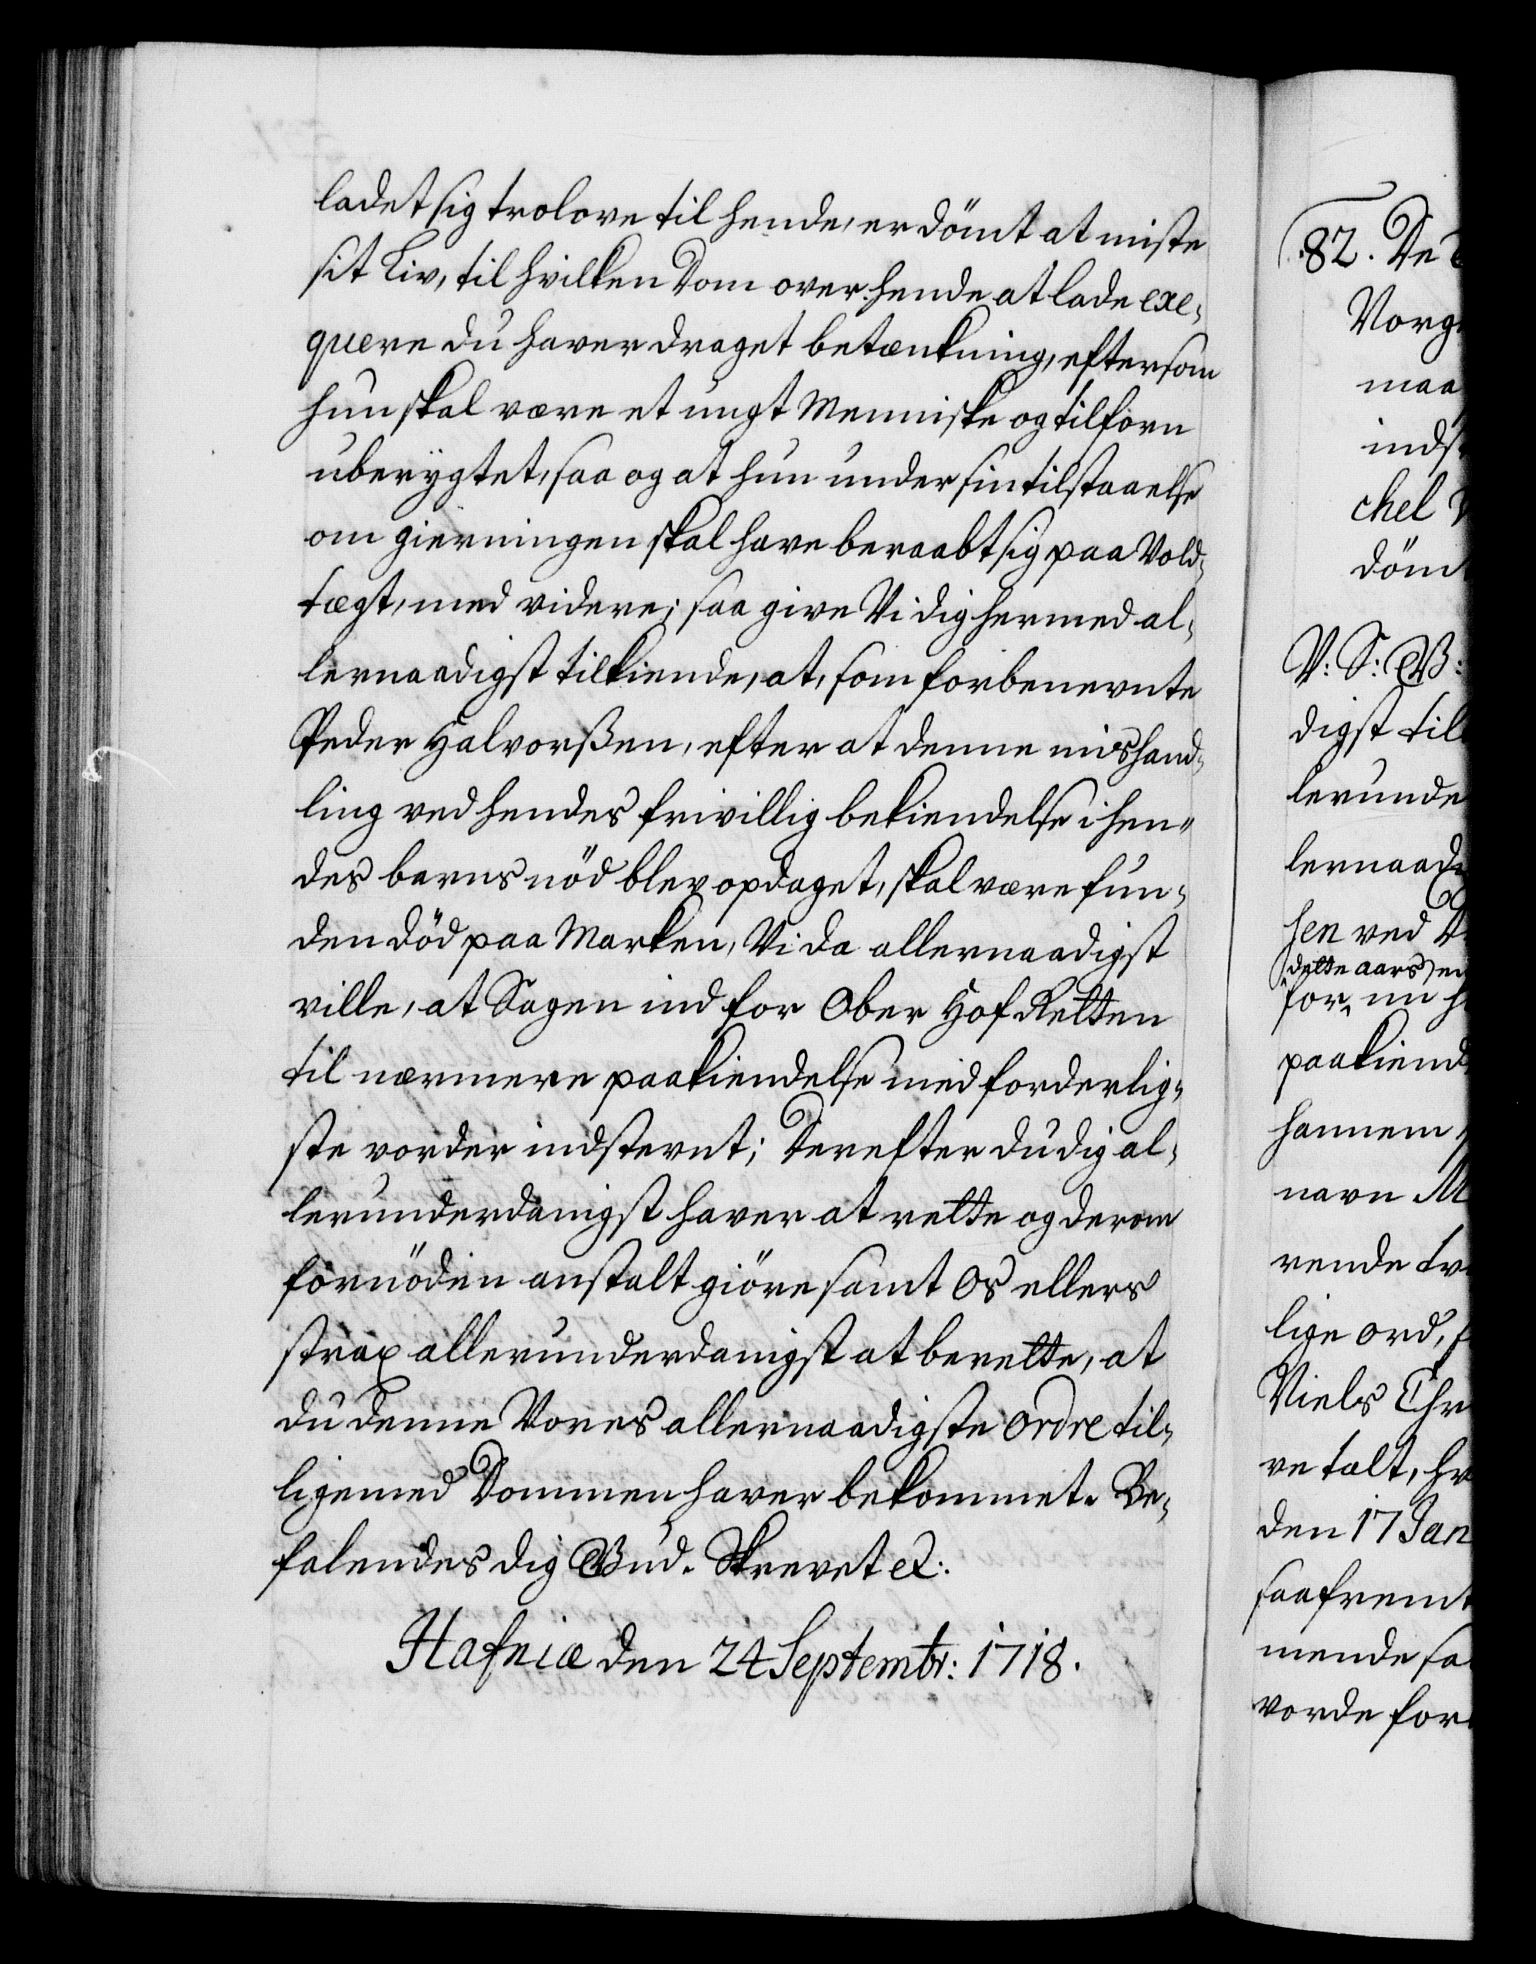 ladet sig trolove til hende, er dömt at miste
sit Liv, til hvilken Dom over hende at lade exe,
qvere du haver draget betænkning, eftersom
hun skal være et ungt Menniske og tilforn
uberygtet, saa og at hun under sin tilstaaelse
om gierningen skal have beraabt sig paa Vold,
tægt, med videre; saa give Vi dig hermed al,
lernaadigst tilkiende, at, som forbenevnte
Peder Halvorßen, efter at denne mishand,
ling ved hendes frivillig bekiendelse i hen"
des barns nöd blev opdaget, skal være fun,
den död paa Marken, Vi da allernaadigst
ville, at Sagen ind for Ober Hof Retten
til nærmere paakiendelse med forderlig,
ste vorder indstevnt; Derefter du dig al,
lerunderdanigst haver at rette og derom
fornöden anstalt giöre samt Os ellers
strax allerunderdanigst at berette, at
du denne Vores allernaadigste ordre til,
ligemed Dommen haver bekommet. Be,
falendes dig Gud. Skrevet etc:
Hafniæ den 24 Septembr: 1718.
82. De
Vorg
maa
indst
chel
döm
V: S: G:
digst til
lerunde
lernaad
sen ved
dette aars
for nu
paakiend
hannem
navn M
rende
lige ord,
Niels Chr
ve talt,
den 17 Jan
saafremt
mende sa
vorde for